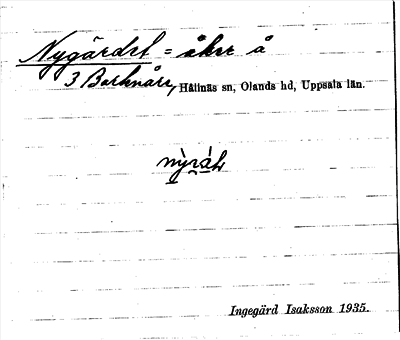 Nygärdet = åker å
3 Barknåre, Hållnäs sn, Olands hd, Uppsala län.
Ingegärd Isaksson 1935.